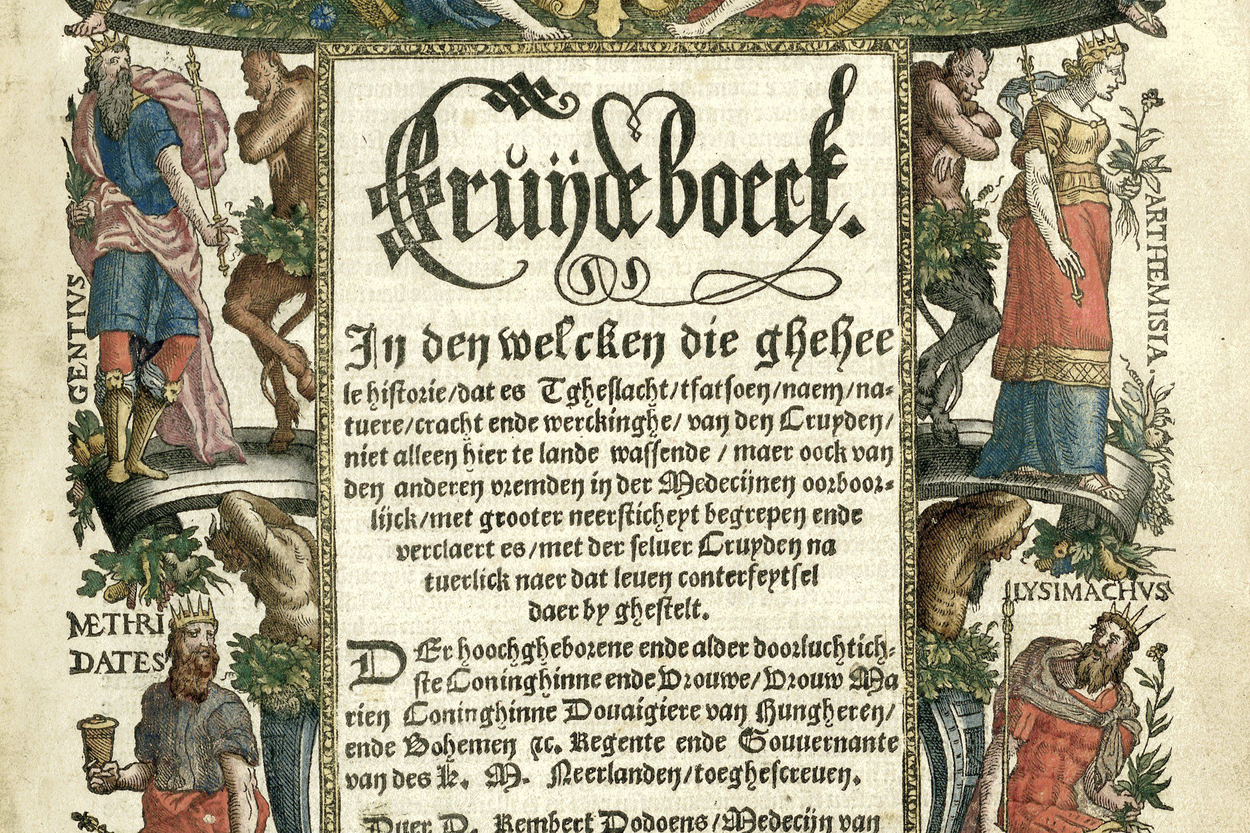 Cruÿdeboeck.
In den welcken die gheheе
le historie/dat es Tgheslacht/tfatsoen/naem/na-
tuere/cracht ende werckinghe/ van den Cruyden/
niet alleen hier te lande wassende / maer oock van
den anderen vremden in der Medecijnen oorboor-
lijck/met grooter neersticheyt begrepen ende
verclaert es/met der seluer Cruyden na
tuerlick naer dat leuen conterfeytsel
daer by ghestelt.
DEr hoochgheborene ende alder doorluchtich-
ste Coninghinne ende Vrouwe/Vrouw Ma
rien Coninghinne Douaigiere van Hungheren/
ende Bohemen ꝛc. Regente ende Gouuernante
van des K. M. Neerlanden/toeghescreuen.
Duer D. Rembert Dodoens/Medecijn van
GENTIVS
ARTHEMISIA.
METHRI
DATES
LYSIMACHVS